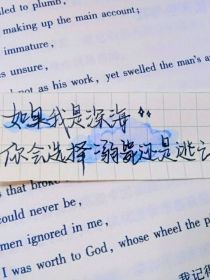 led to plumb,
making up the main account;
immature,
unsure,
not as his work, yet swelled the man's a
如果我是深海"
你会选择溺毙还是逃亡
that broke
could never be,
men ignored in me,
I was worth to God, whose wheel the p
我记得